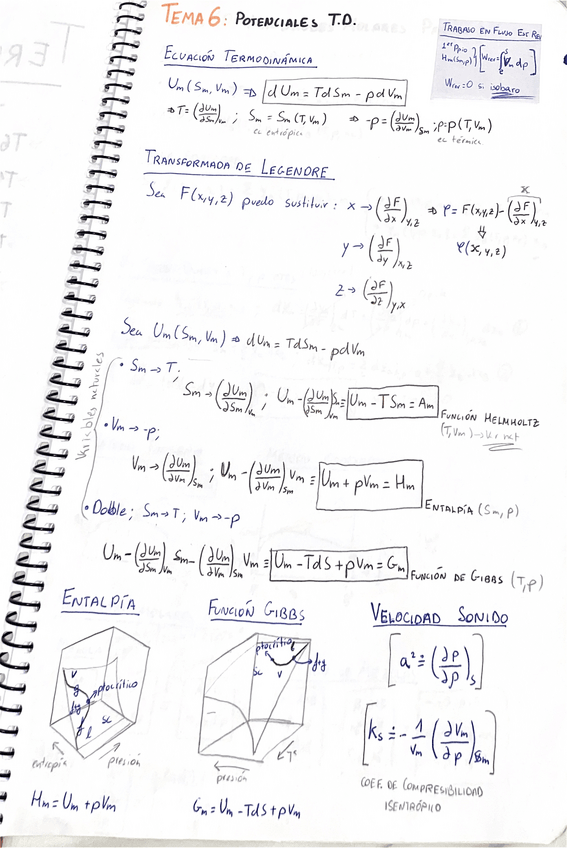 TEMA 6: POTENCIALES T.D.
TRABAJO EN FLUJO EST. REV
1er Ppio
Hm(Sm,p) } [Wrev = ∫ Vm dp]
Wrev = 0 si isobaro
ECUACIÓN TERMODINÁMICA
Um(Sm, Vm) ⇒ dUm = TdSm - pdVm
⇒ T = (∂Um/∂Sm)Vm ; Sm = Sm(T, Vm) ⇒ -p = (∂Um/∂Vm)Sm ; p = p(T, Vm)
ec entrópica
ec térmica
TRANSFORMADA DE LEGENDRE
Sea F(x,y,z) puedo sustituir: x → (∂F/∂x)y,z ⇒ φ = F(x,y,z) - (∂F/∂x)y,z
X
y → (∂F/∂y)x,z
⇓
φ(X, y, z)
z → (∂F/∂z)y,x
Sea Um(Sm, Vm) ⇒ dUm = TdSm - pdVm
Variables naturales
• Sm → T;
Sm → (∂Um/∂Sm)Vm ; Um - (∂Um/∂Sm)Sm ≡ Um - TSm = Am
FUNCIÓN HELMHOLTZ
(T, Vm) → Var nat
• Vm → -p;
Vm → (∂Um/∂Vm)Sm ; Um - (∂Um/∂Vm)Sm Vm ≡ Um + pVm = Hm
ENTALPÍA (Sm, p)
• Doble; Sm → T; Vm → -p
Um - (∂Um/∂Sm)Vm Sm - (∂Um/∂Vm)Sm Vm ≡ Um - TdS + pVm = Gm
FUNCIÓN DE GIBBS (T, p)
ENTALPÍA
FUNCIÓN GIBBS
VELOCIDAD SONIDO
v
g
ptocrítico
sc
l
entropía
presión
Hm = Um + pVm
ptocrítico
l
sc
v
presión
Tª
Gm = Um - TdS + pVm
[a² ≐ (∂p/∂ρ)s]
[ks ≐ - 1/Vm (∂Vm/∂p)Sm]
COEF. DE COMPRESIBILIDAD
ISENTRÓPICO